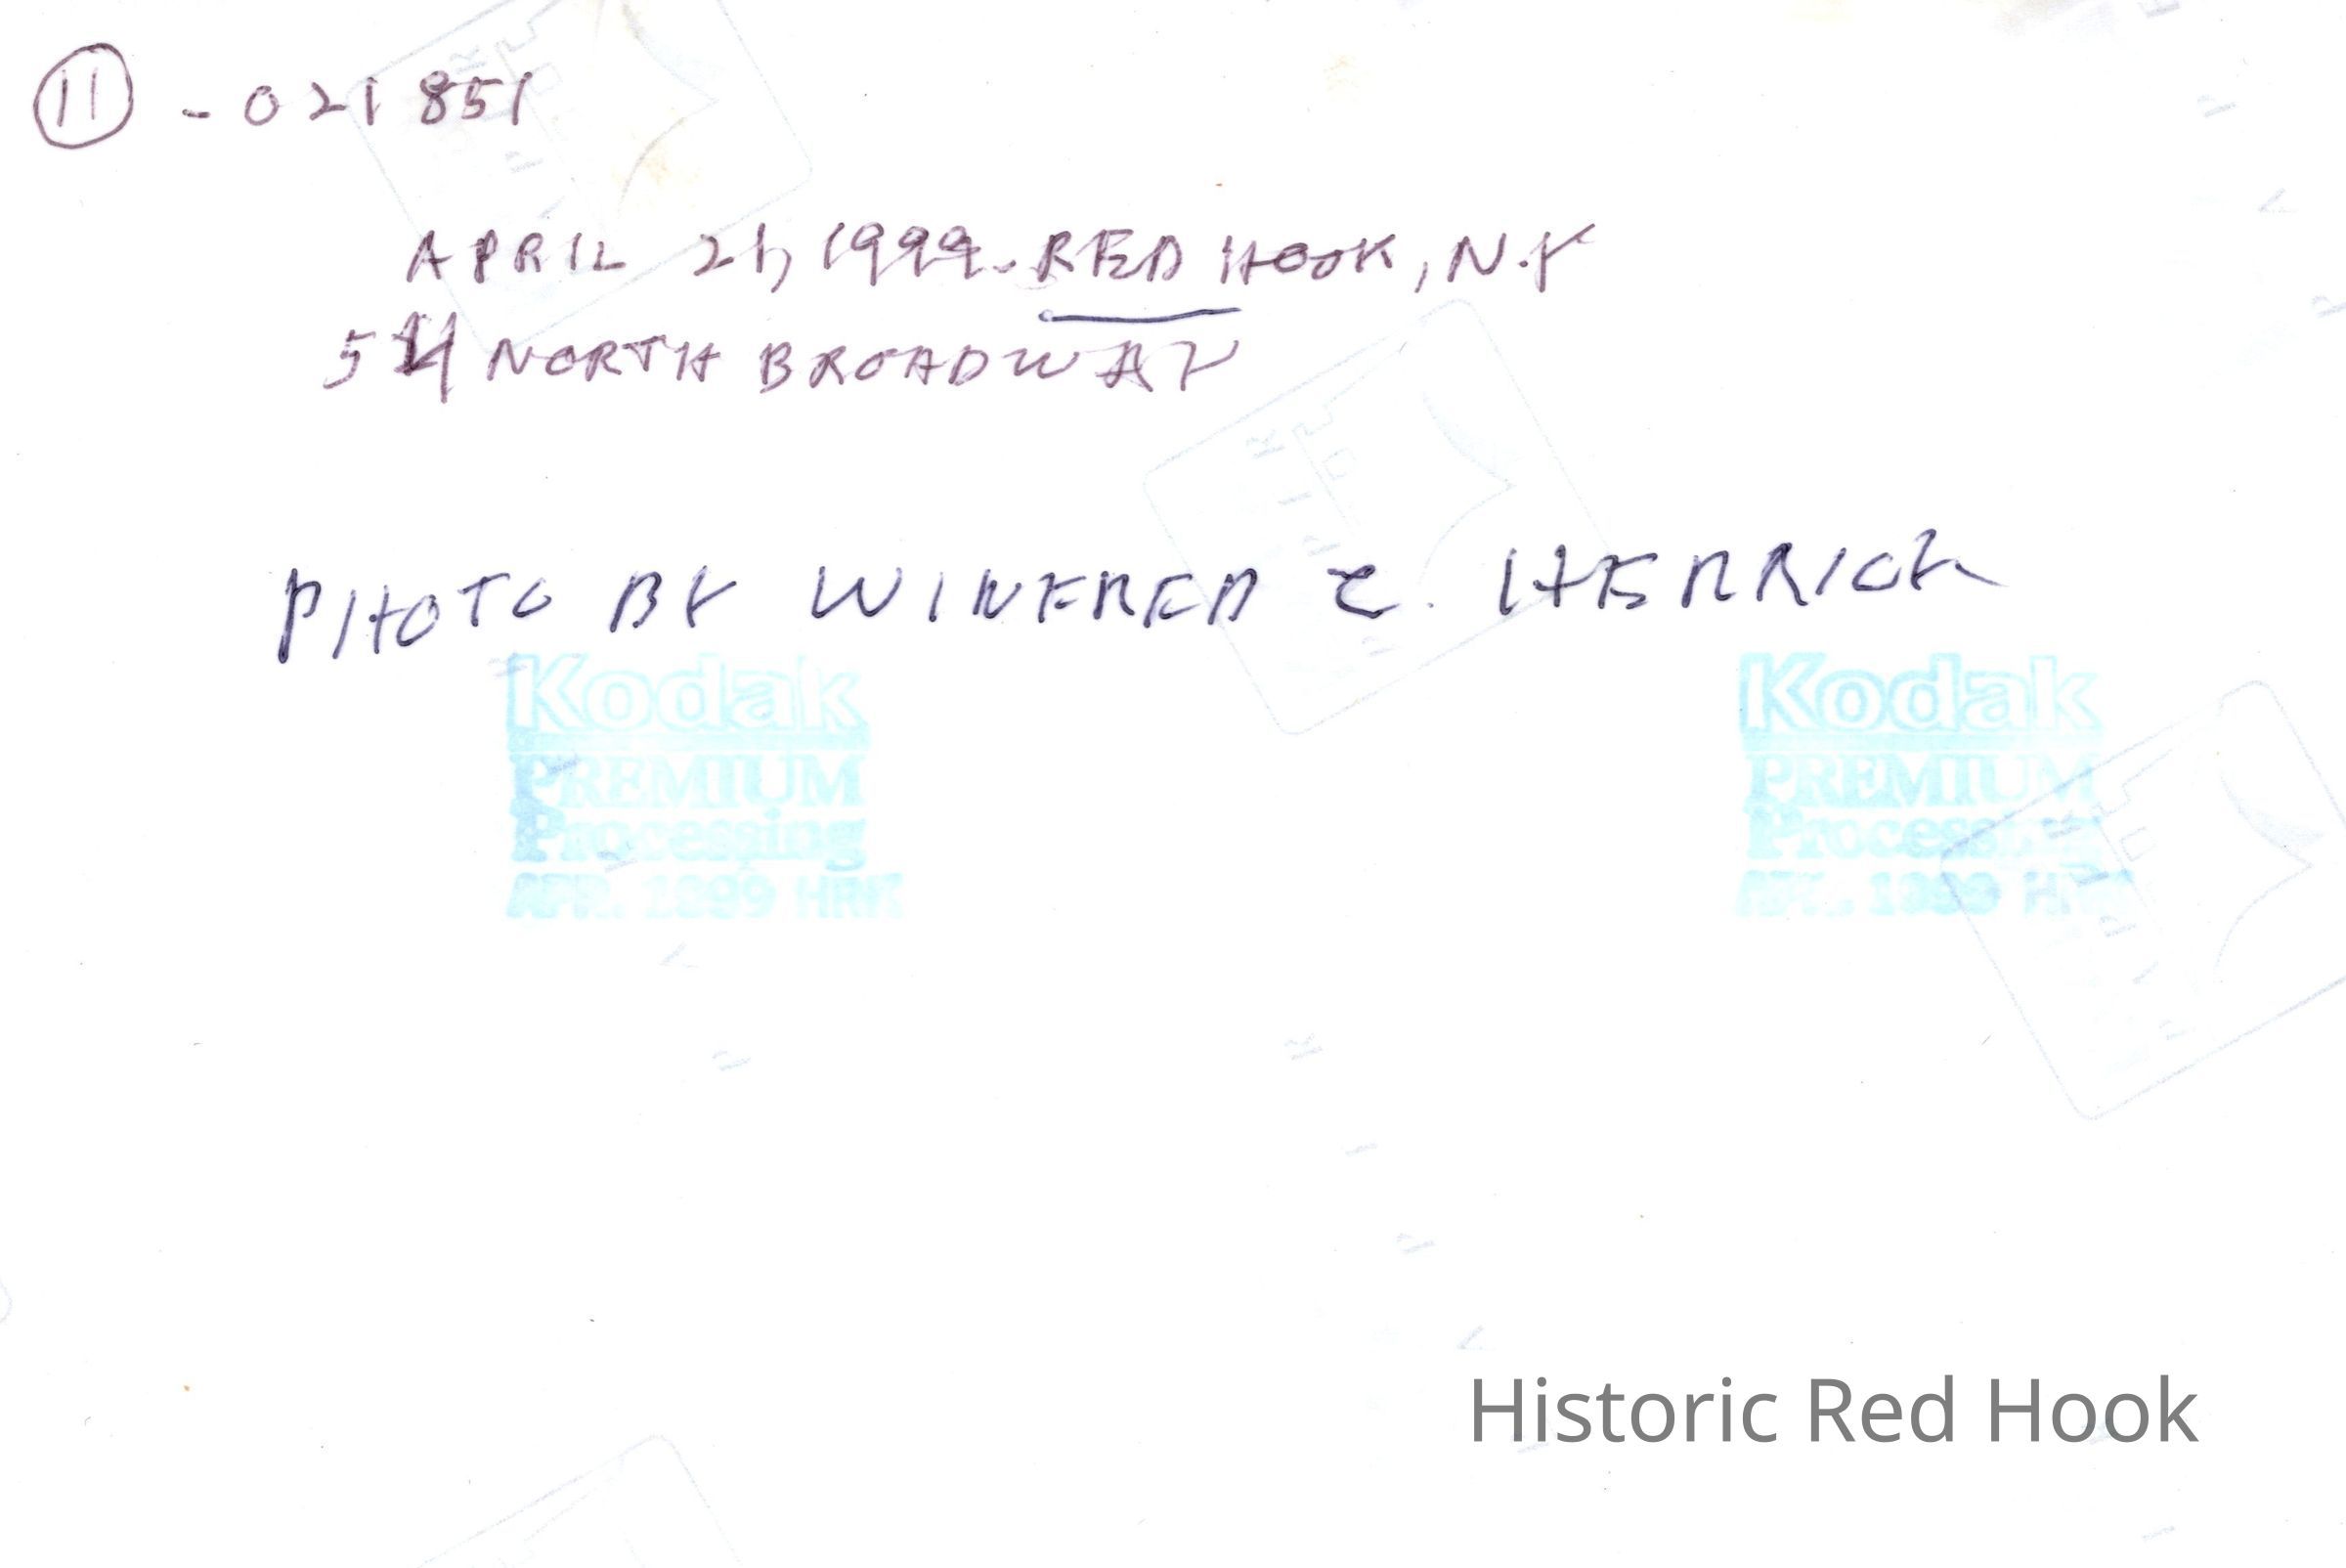 11 - 021851
APRIL 21, 1999. RED HOOK, N.Y
54 NORTH BROADWAY
PHOTO BY WINFRED C. HENRICK
Kodak Kodak
PREMIUM PREMIUM
Processing Processing
APR. 1999 HRK APR. 1999
Historic Red Hook